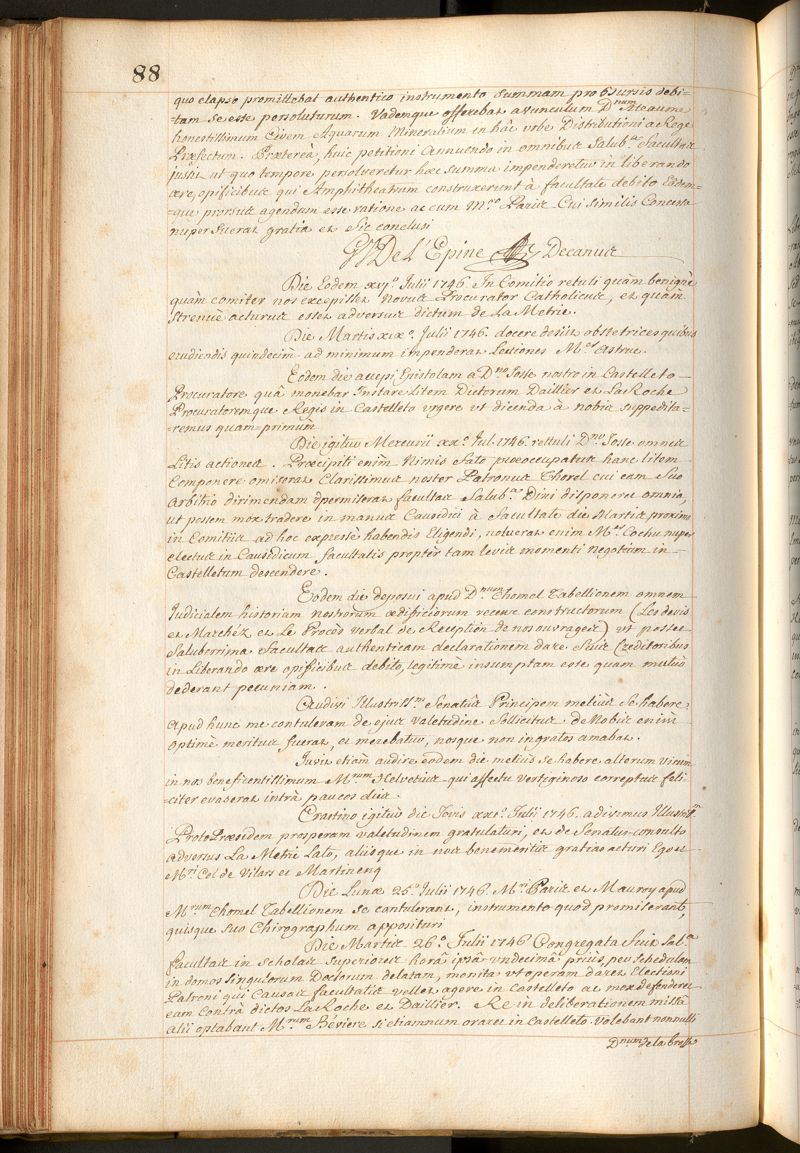 88
quo elapso promittebat authentico instrumento summam pro bursis debi=
tam se esse persoluturum. Vademque offerebat avunculum D.num Ateaume
honestissimum Civem Aquarum Mineralium in hâc urbe Distributioni a Rege
Præfectum. Præterea, huic petitioni Annuendo in omnibus Salub.æ Facultas
jussit ut quo tempore persolveretur hæc summa impenderetur in liberando
ære, opificibus qui Amphitheatrum construxerunt à facultate debito Eadem=
=que prorsus agendum esse ratione ac cum M.ro Paris Cui similis Concessa
nuper fuerat gratia et Sic conclusi
De L'Epine Decanus
Die Eodem xvj.o Julii 1746. In Comitio retuli quàm benignè
quàm comiter nos excepisset Novus Procurator Catholicus, et quàm
strenuè acturus esset adversus dictum de La Metrie.
Die Martis xix.o Julii 1746. docere desiit obstetrices quibus
erudiendis quindecim ad minimum impenderat Lectiones M.er Astruc.
Eodem die accepi Epistolam a D.no Josse nostro in Castelleto
Procuratore quâ monebar Instare Litem Dictorum Daillier et La Roche
Procuratoremque Regis in Castelleto urgere ut dicenda à nobis suppedita=
=remus quam primum
Die igitur Mercurii xx.o Jul. 1746. rettuli D.no Josse omnes
Litis actiones. Præcipiti enim Nimis Fato præoccupatus hanc litem
Componere omiserat Clarissimus noster Patronus Thorel cui eam suo
arbitrio dirimendam permiserat facultas Salub.a Dixi disponeret omnia,
ut possem mox tradere in manus Causidici à Facultate die Martis proximo
in Comitiis ad hoc expressè habendis Eligendi, noluerat enim M.er Cochu nuper
electus in Causidicum facultatis propter tam levis momenti negotium in=
Castelletum descendere.
Eodem die deposui apud D.num Chomel Tabellionem omnem
Judicialem historiam nostrorum ædificiorum recens constructorum (Les devis
et Marchéz et Le Procès verbal de Reception de nos ouvrages) ut posset
Saluberrima Facultas authenticam declarationem dare Suis Creditoribus
in Liberando ære opificibus debito, legitimè insumptam esse quam mutuò
dederant pecuniam.
Audivi Illustriss.m Senatûs Principem meliùs se habere,
apud hunc me contuleram de ejus valetudine sollicitus. de Nobis enim
optimè meritus fuerat, et merebatur, nosque non ingratos amabat.
Juvit etiam audire eodem die meliùs se habere alterum virum
in nos beneficentissimum M.rum Helvetius qui affectu vertiginoso correptus feli=
=citer evaserat intrà paucos dies.
Crastino igitur die Jovis xxi.o Julii 1746. adivimus Illustriss.m
Proto Præsidem prosperam valetudinem gratulaturi, et de Senatus-consulto
adversus La Metrie Lato, aliisque in nos benemeritis gratias acturi Ego et
M.ri Col de Vilars et Martinenq
Die Lunæ 25.o Julii 1746. M.ri Paris et Mauroy apud
M.rum Chomel Tabellionem se contulerant, instrumento quod promiserant,
quisque suo Chirographum apposituri
Die Martis 26.o Julii 1746 Congregata fuit Sal.a
facultas in scholis Superioris horâ ipsâ undecimâ priùs, per schedulam
in domos singulorum Doctorum delatam, monita ut operam daret Electioni
Patroni qui Causas facultatis vellet agere in Castelleto ac mox defenderet
eam Contrà dictos La Roche et Daillier. Re in deliberationem missâ
alii optabant M.rum Béviere si etiamnum oraret in Castelleto. Volebant nonnulli
D.num de la Bresse